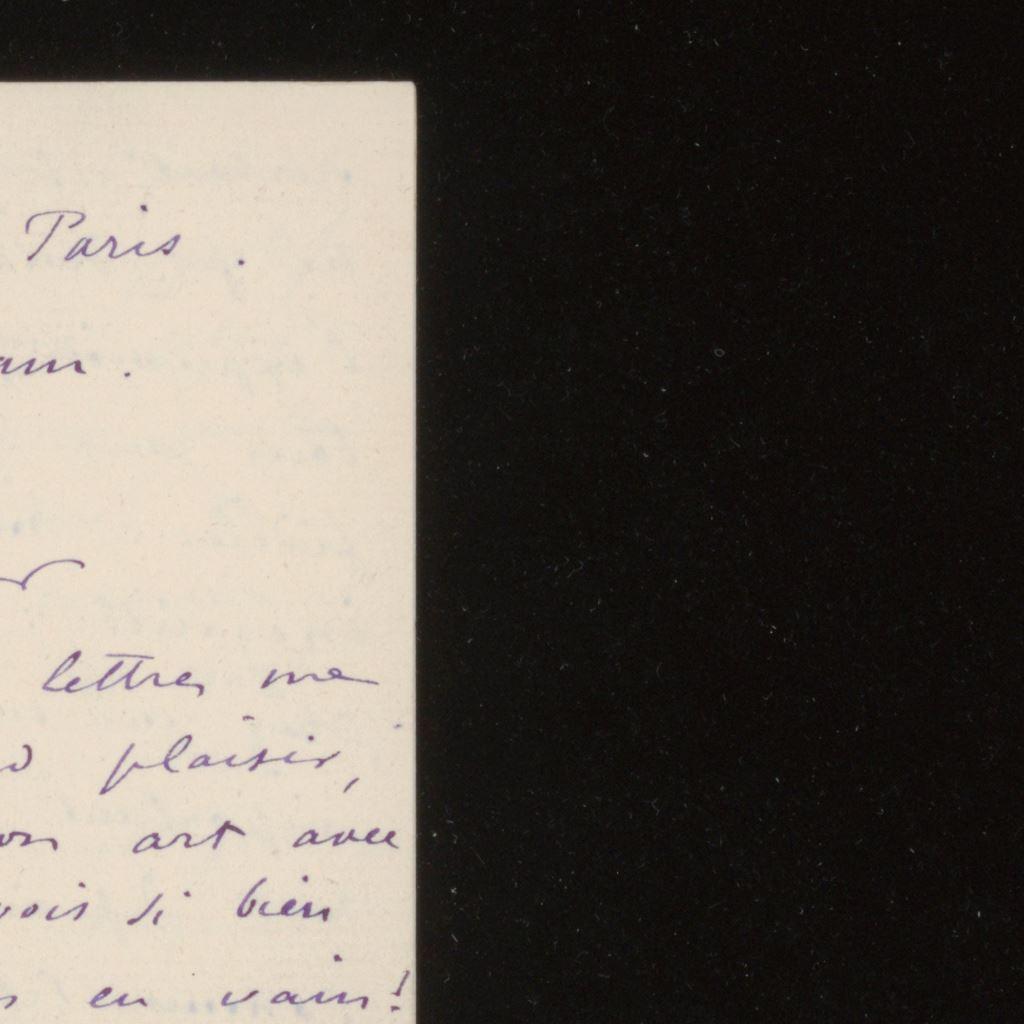 Paris.
am.
lettres me
plaisir,
on art avec
vois si bien
s en vain!